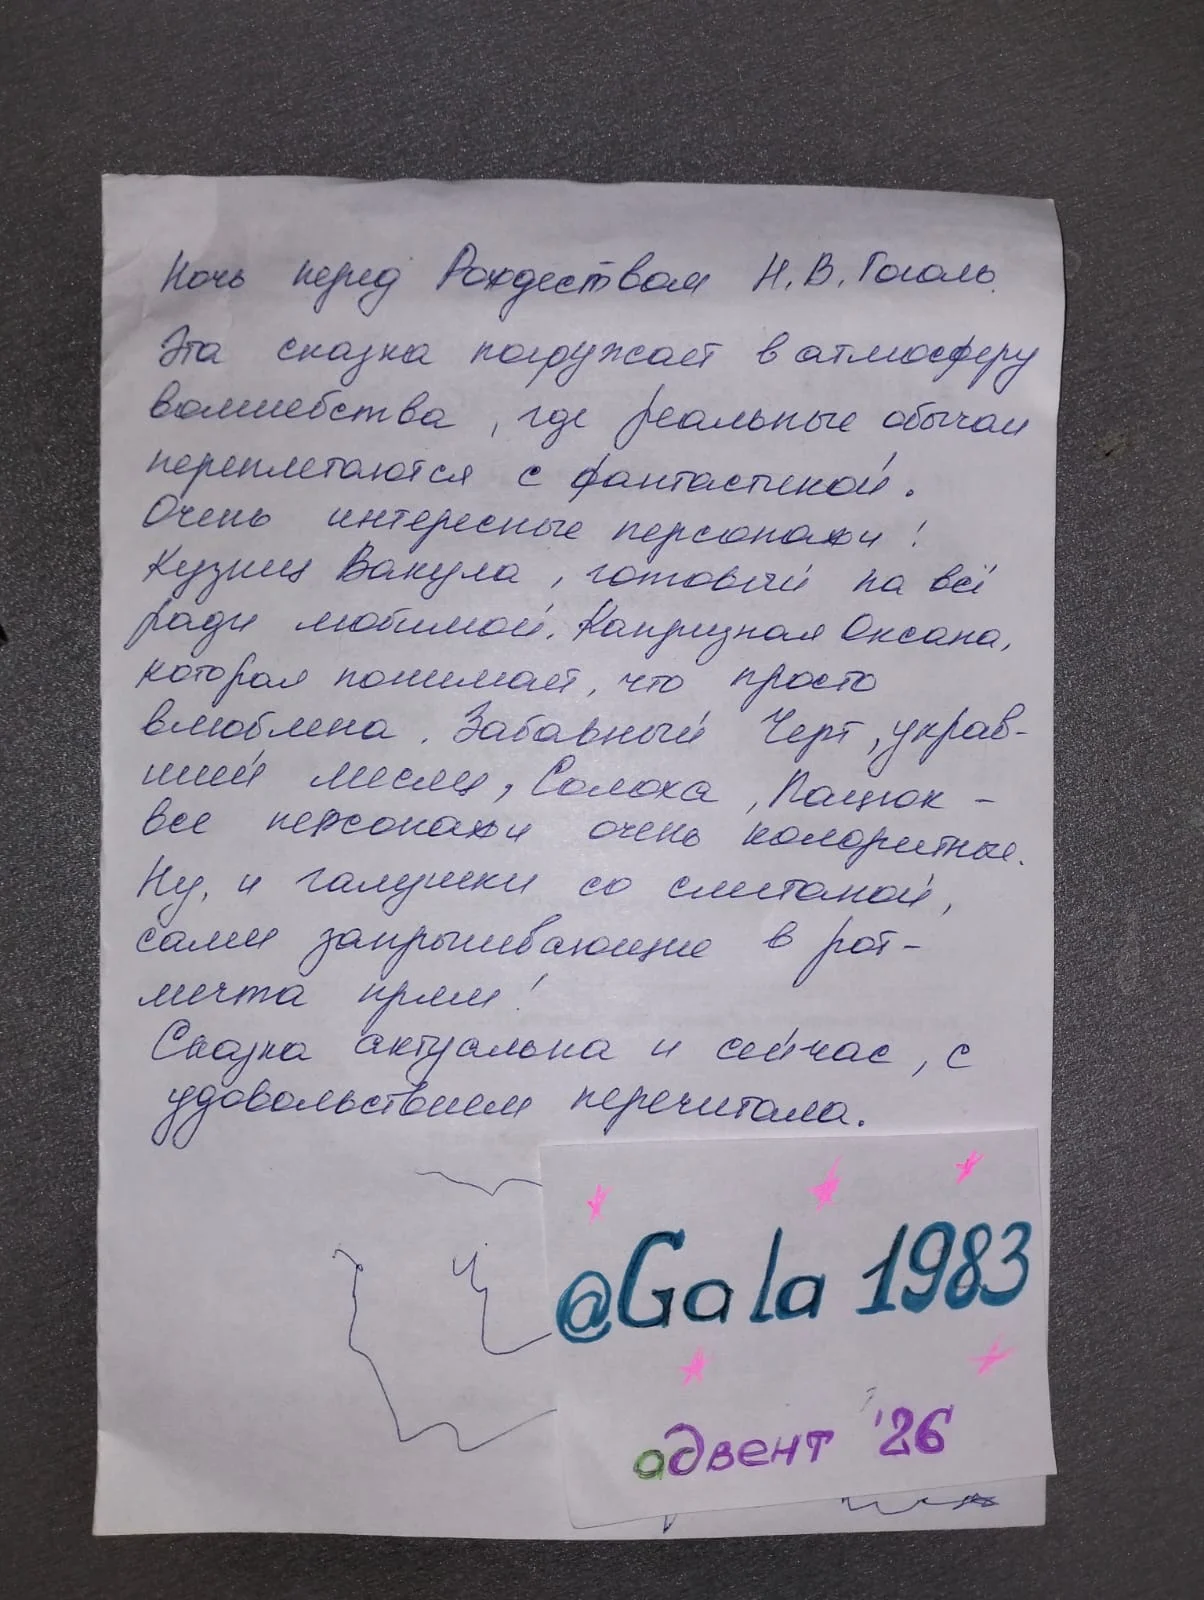 Ночь перед Рождеством Н.В. Гоголь.
Эта сказка погружает в атмосферу
волшебства, где реальные обычаи
переплетаются с фантастикой.
Очень интересные персонажи!
Кузнец Вакула, готовый на всё
ради любимой. Капризная Оксана,
которая понимает, что просто
влюблена. Забавный Черт, украв-
ший месяц, Солоха, Пацюк -
все персонажи очень колоритные.
Ну, и галушки со сметаной,
сами запрыгивающие в рот -
мечта прям!
Сказка актуальна и сейчас, с
удовольствием перечитала.
@Gala 1983
адвент '26